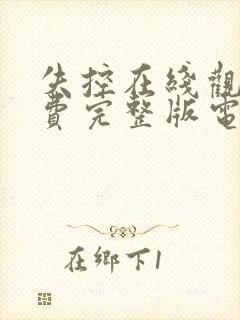 失控在綫觀
費完整版電
在鄉下1